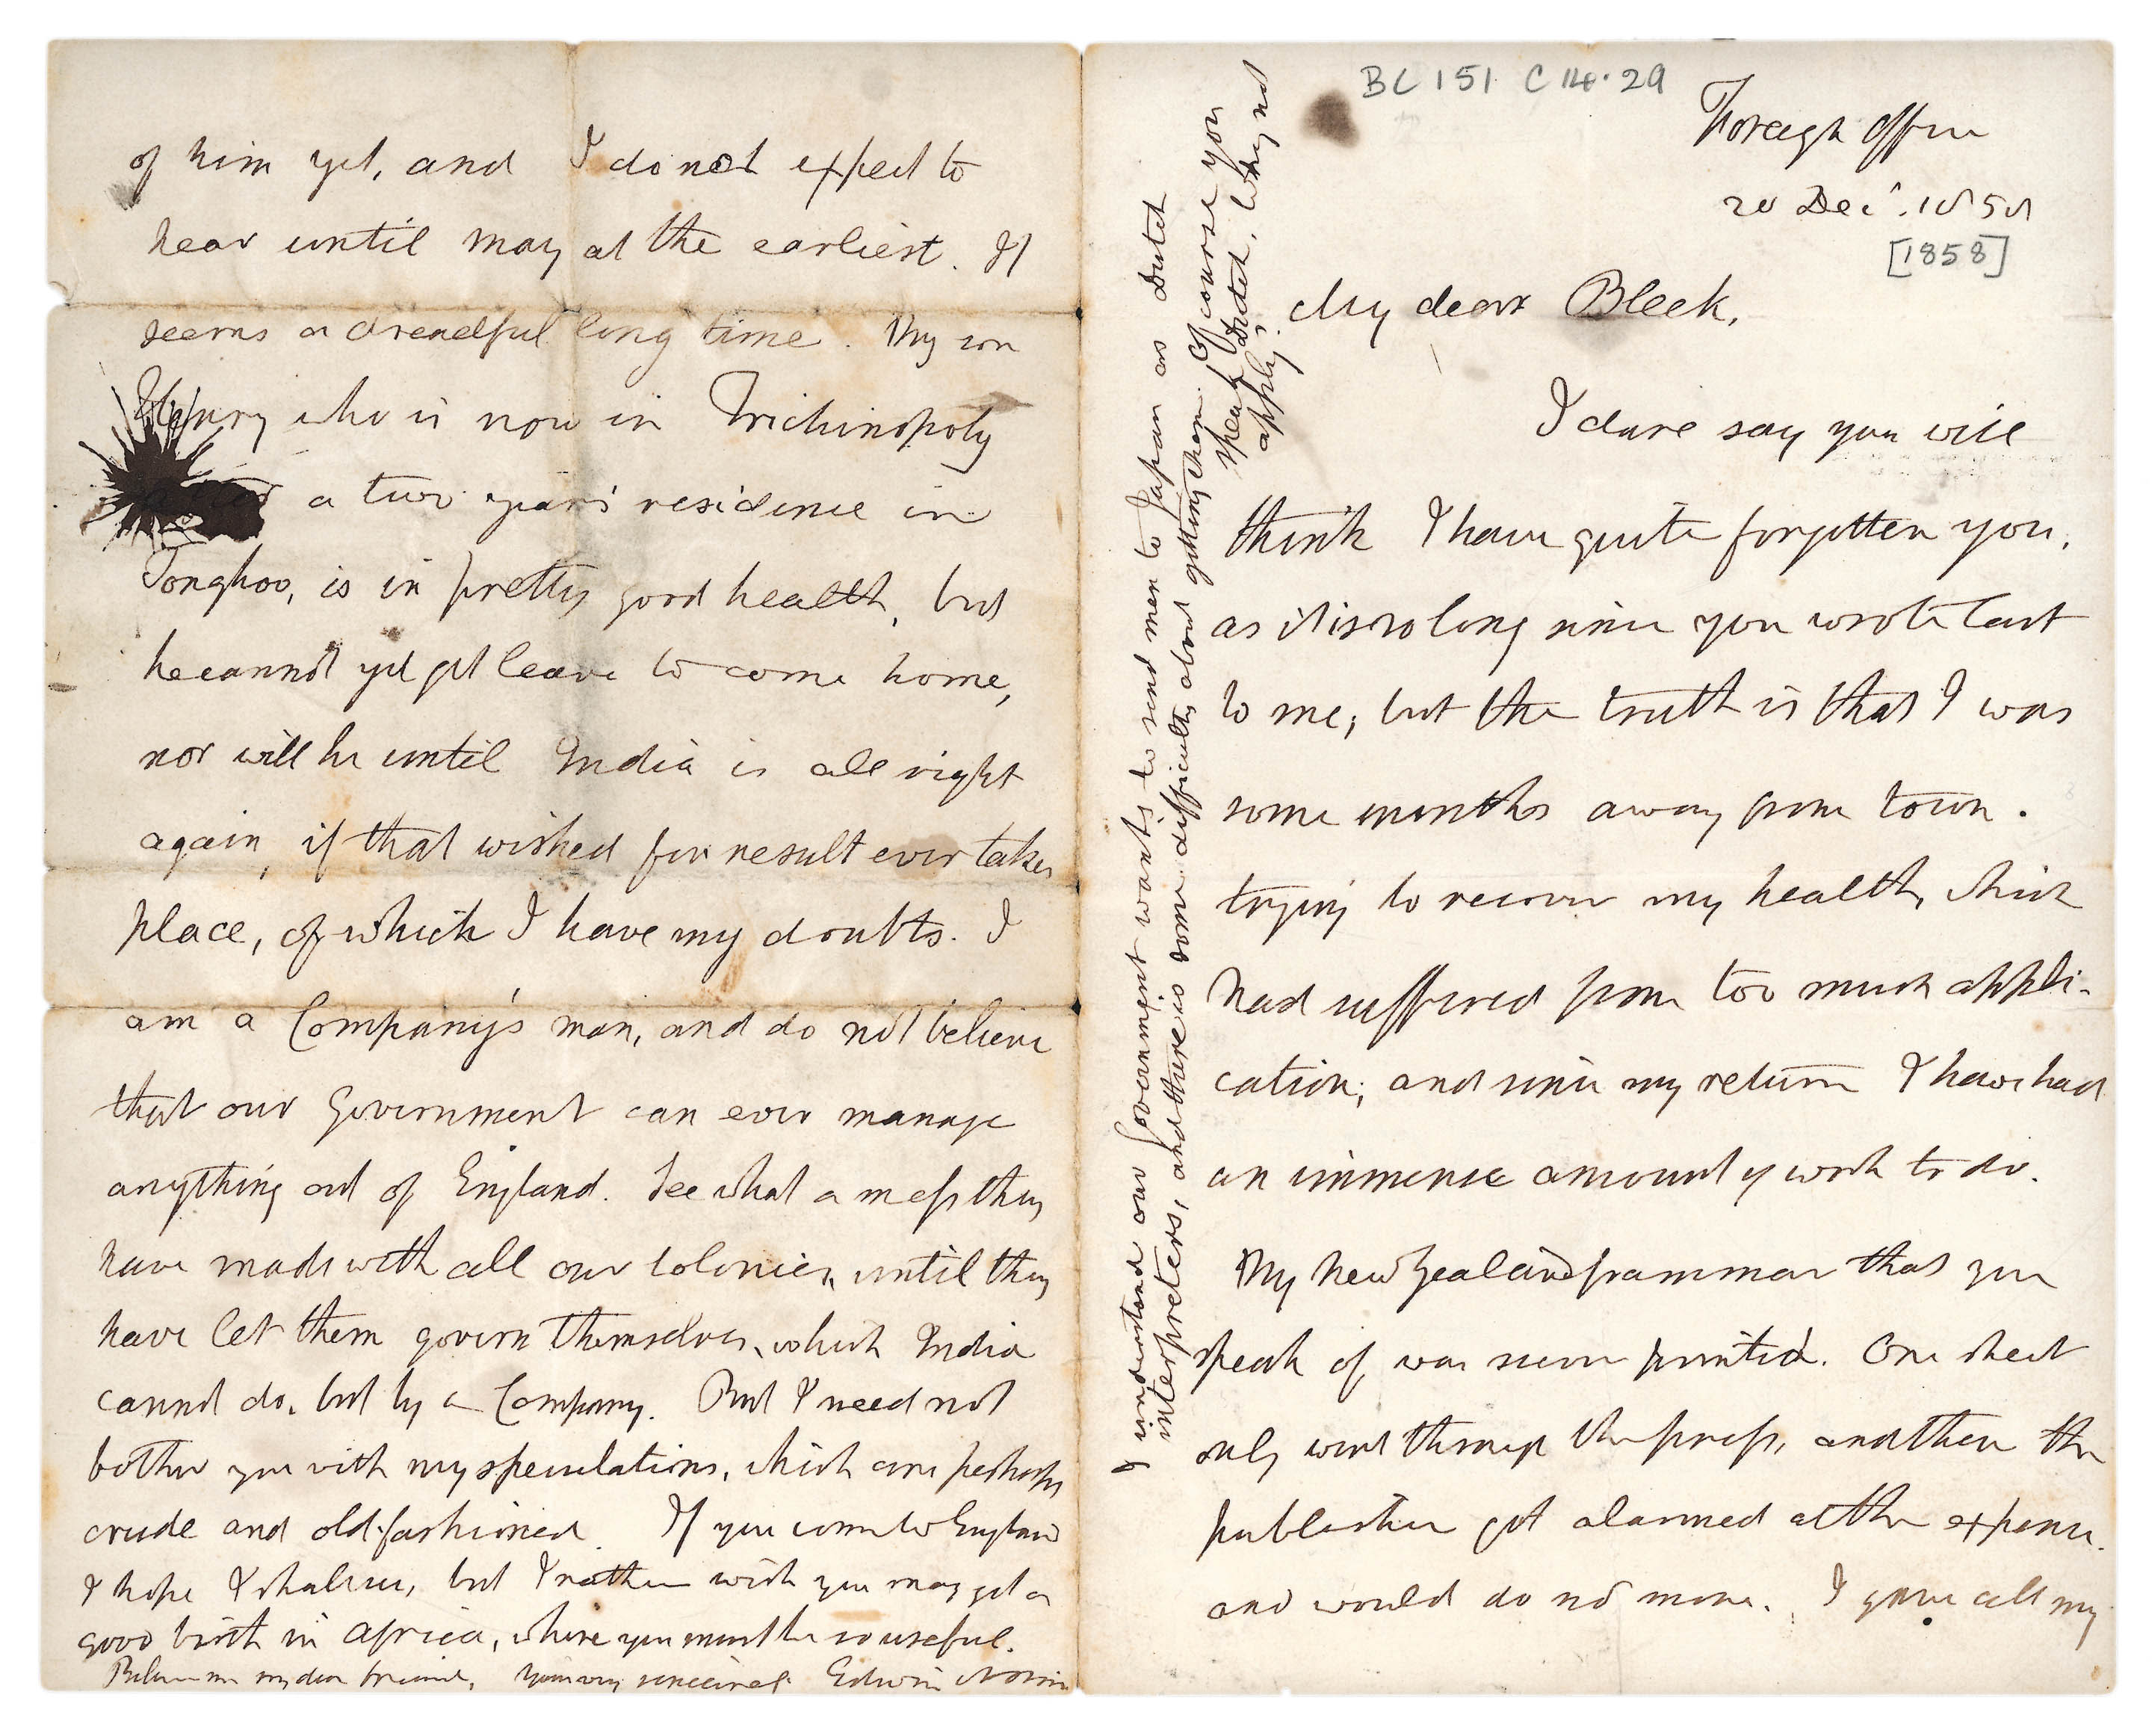 BC 151 C 14.29
Foreign Office
20 Dec. 1858
[1858]
My dear Bleek,
I dare say you will
think I have quite forgotten you,
as it is so long since you wrote last
to me; but the truth is that I was
some months away from town.
trying to recover my health, which
had suffered from too much appli-
cation; and since my return I have had
an immense amount of work to do.
My New Zealand grammar that you
speak of was never printed. One sheet
only went through the press, and then the
publisher got alarmed at the expense.
and would do no more. I gave all my
I understand our Government wants to send men to Japan as Dutch
interpreters, and there is some difficulty about getting them. Of course you
speak Dutch. Why not
apply?
of him yet, and I do not expect to
hear until May at the earliest. It
seems a dreadful long time. My son
Henry who is now in Trichinopoly
after a two years' residence in
Tonghoo, is in pretty good health, but
he cannot yet get leave to come home,
nor will he until India is all right
again, if that wished for result ever takes
place, of which I have my doubts. I
am a Company's man, and do not believe
that our Government can ever manage
anything out of England. See what a mess they
have made with all our colonies, until they
have let them govern themselves, which India
cannot do, but by a Company. But I need not
bother you with my speculations, which are perhaps
crude and old-fashioned. If you come to England
I hope I shall see you, but I rather wish you may get a
good birth in Africa, where you must be so useful.
Believe me my dear friend, Yours very sincerely Edwin Norris